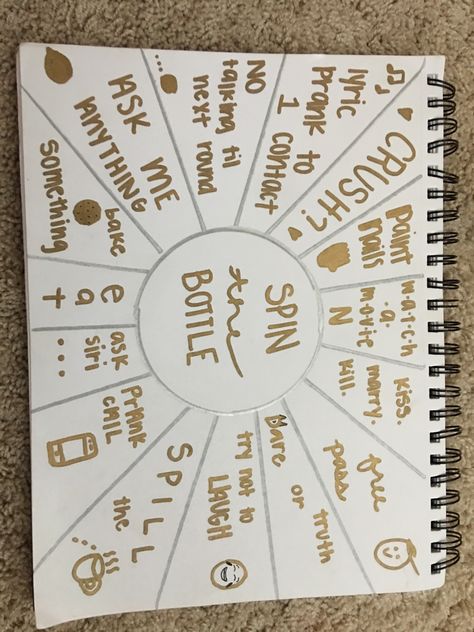 SPIN
the
BOTTLE
lyric
prank to
1 contact
CRUSH?
paint
nails
w.a.t.c.h
.a.
m.o.v.i.e
N
kiss.
marry.
kill.
free
pass
Dare
or
truth
try not to
LAUGH
SPILL
the
Prank
CALL
ask
siri
...
eat
bake
something
ASK ME
ANYTHING
NO
talking til
next round
...